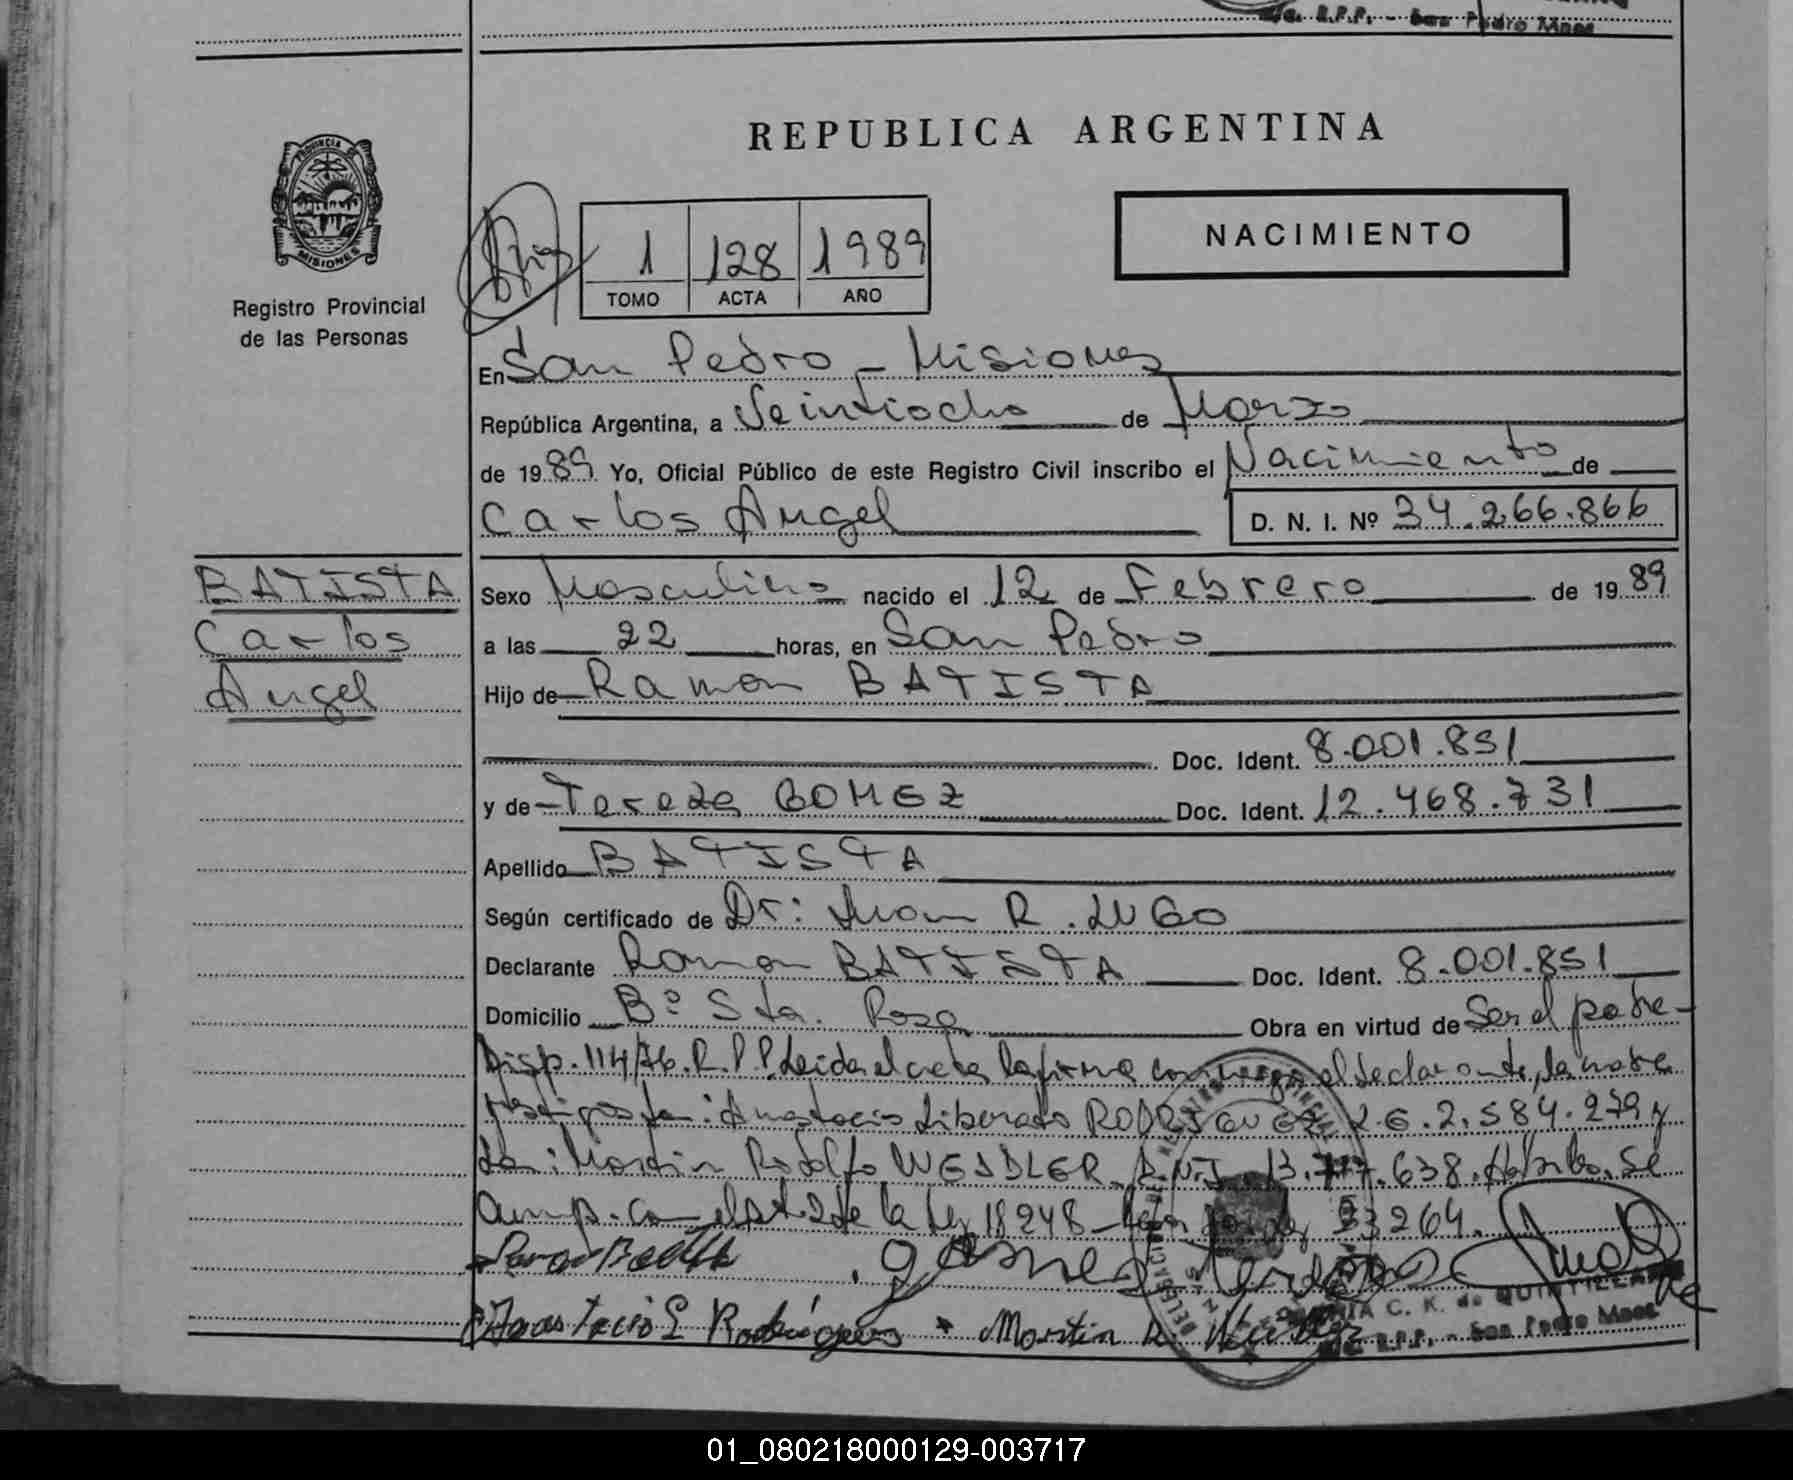 R.P.P. - San Pedro Mnes
REPUBLICA ARGENTINA
PROVINCIA DE
MISIONES
Registro Provincial
de las Personas
1 128 1989
TOMO ACTA AÑO
NACIMIENTO
En San Pedro - Misiones
República Argentina, a Veintiocho de Marzo
de 1989 Yo, Oficial Público de este Registro Civil inscribo el Nacimiento de
Carlos Angel D. N. I. Nº 34.266.866
BATISTA
Carlos
Angel
Sexo Masculino nacido el 12 de Febrero de 1989
a las 22 horas, en San Pedro
Hijo de Ramon BATISTA
Doc. Ident. 8.001.851
y de Tereza GOMEZ Doc. Ident. 12.468.731
Apellido BATISTA
Según certificado de Dr: Juan R. LUGO
Declarante Ramon BATISTA Doc. Ident. 8.001.851
Domicilio Bº Sta. Rosa Obra en virtud de Ser el padre-
Disp. 114/76. R.P.P. Leida el acta la firma conmigo el declarante, la madre
y testigos: Anastacio Liberato RODRIGUEZ 2.584.279 y
Martin Rodolfo WENDLER D.N.I. 13.777.638. Se
cump. con el art. 2 de la Ley 18248 - 23264.
Gomez Tereza
Anastacio L Rodrigues Martin R.
C. K. de QUINTILLAN
R.P.P. - San Pedro Mnes
01_080218000129-003717